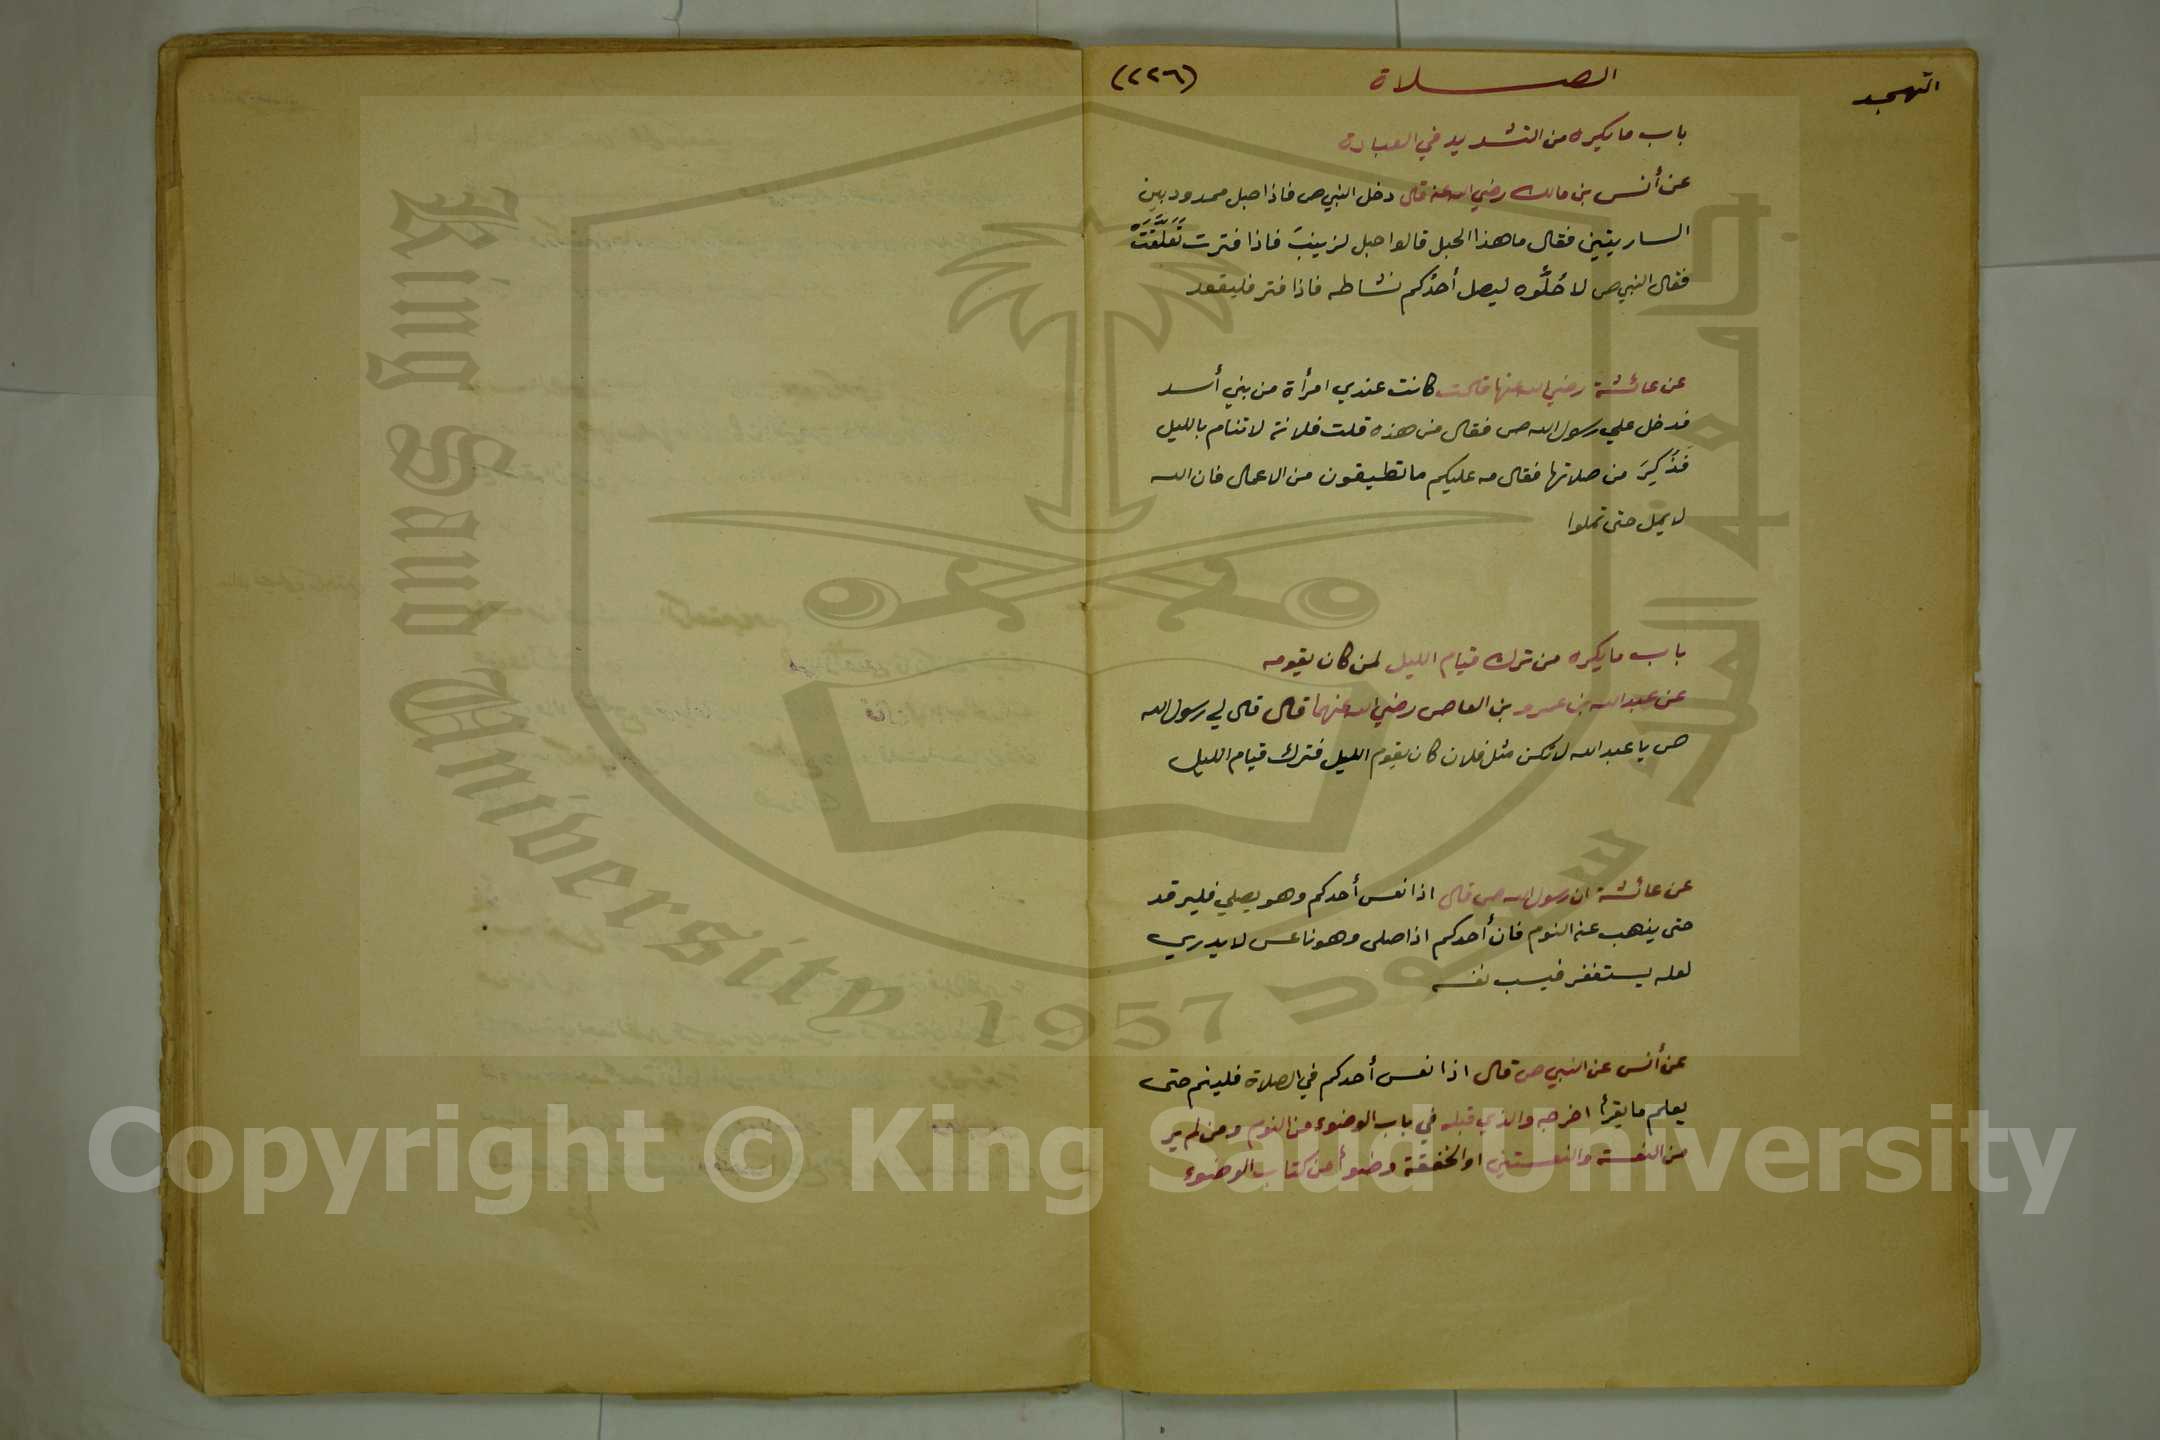 التهجد
الصلاة
(٢٢٦)
باب ما يكره من التشديد في العبادة
عن أنس بن مالك رضي الله عنه قال دخل النبي ص فاذا حبل ممدود بين
الساريتين فقال ما هذا الحبل قالوا حبل لزينبَ فاذا فترت تَعَلَّقَتْ
فقال النبي ص لا حُلُّوه ليصل أحدُكم نشاطه فاذا فتر فليقعد
عن عائشة رضي الله عنها قالت كانت عندي امرأة من بني أسد
فدخل علي رسول الله ص فقال من هذه قلت فلانة لا تنام بالليل
فذُكِرَ من صلاتها فقال مه عليكم ما تطيقون من الاعمال فان الله
لا يمل حتى تملوا
باب ما يكره من ترك قيام الليل لمن كان يقومه
عن عبد الله بن عمرو بن العاص رضي الله عنهما قال قال لي رسول الله
ص يا عبد الله لا تكن مثل فلان كان يقوم الليل فترك قيام الليل
عن عائشة ان رسول الله ص قال اذا نعس أحدكم وهو يصلي فليرقد
حتى يذهب عنه النوم فان أحدكم اذا صلى وهو ناعس لا يدري
لعله يستغفر فيسب نفسه
عن أنس عن النبي ص قال اذا نعس أحدكم في الصلاة فلينم حتى
يعلم ما يقرأ اخرجه والذي قبله في باب الوضوء من النوم ومن لم ير
من النعسة والنعستين او الخفقة وضوأ من كتاب الوضوء
King Saud University 1957
Copyright © King Saud University